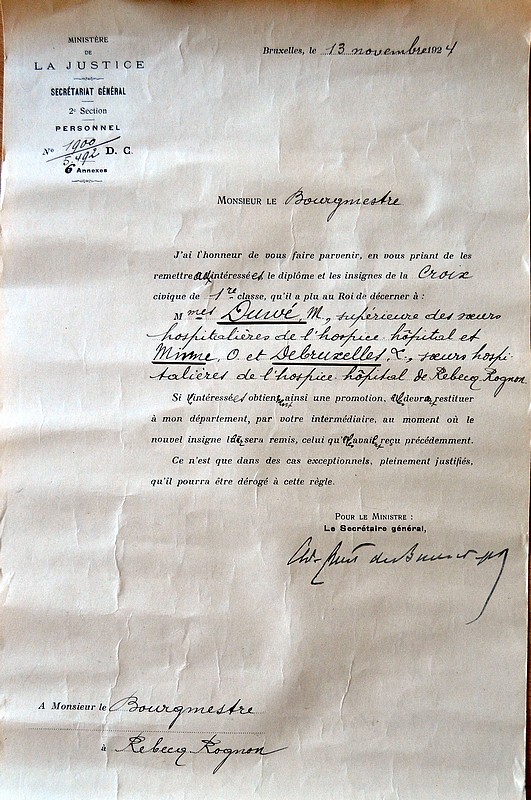 MINISTÈRE
DE
LA JUSTICE
SECRÉTARIAT GÉNÉRAL
2e Section
PERSONNEL
No 1900/5.492 D. C.
6 Annexes
Bruxelles, le 13 novembre 1924
MONSIEUR LE Bourgmestre
J'ai l'honneur de vous faire parvenir, en vous priant de les
remettre aux intéressées le diplôme et les insignes de la Croix
civique de 1re classe, qu'il a plu au Roi de décerner à :
Mmes Duwé, M., supérieure des sœurs
hospitalières de l'hospice hôpital et
Minne, O. et Debruxelles, L., sœurs hospi-
talières de l'hospice hôpital de Rebecq Rognon
Si l'intéressées obtient ainsi une promotion, devra restituer
à mon département, par votre intermédiaire, au moment où le
nouvel insigne sera remis, celui qu' avait reçu précédemment.
Ce n'est que dans des cas exceptionnels, pleinement justifiés,
qu'il pourra être dérogé à cette règle.
POUR LE MINISTRE :
Le Secrétaire général,
A Monsieur le Bourgmestre
à Rebecq Rognon